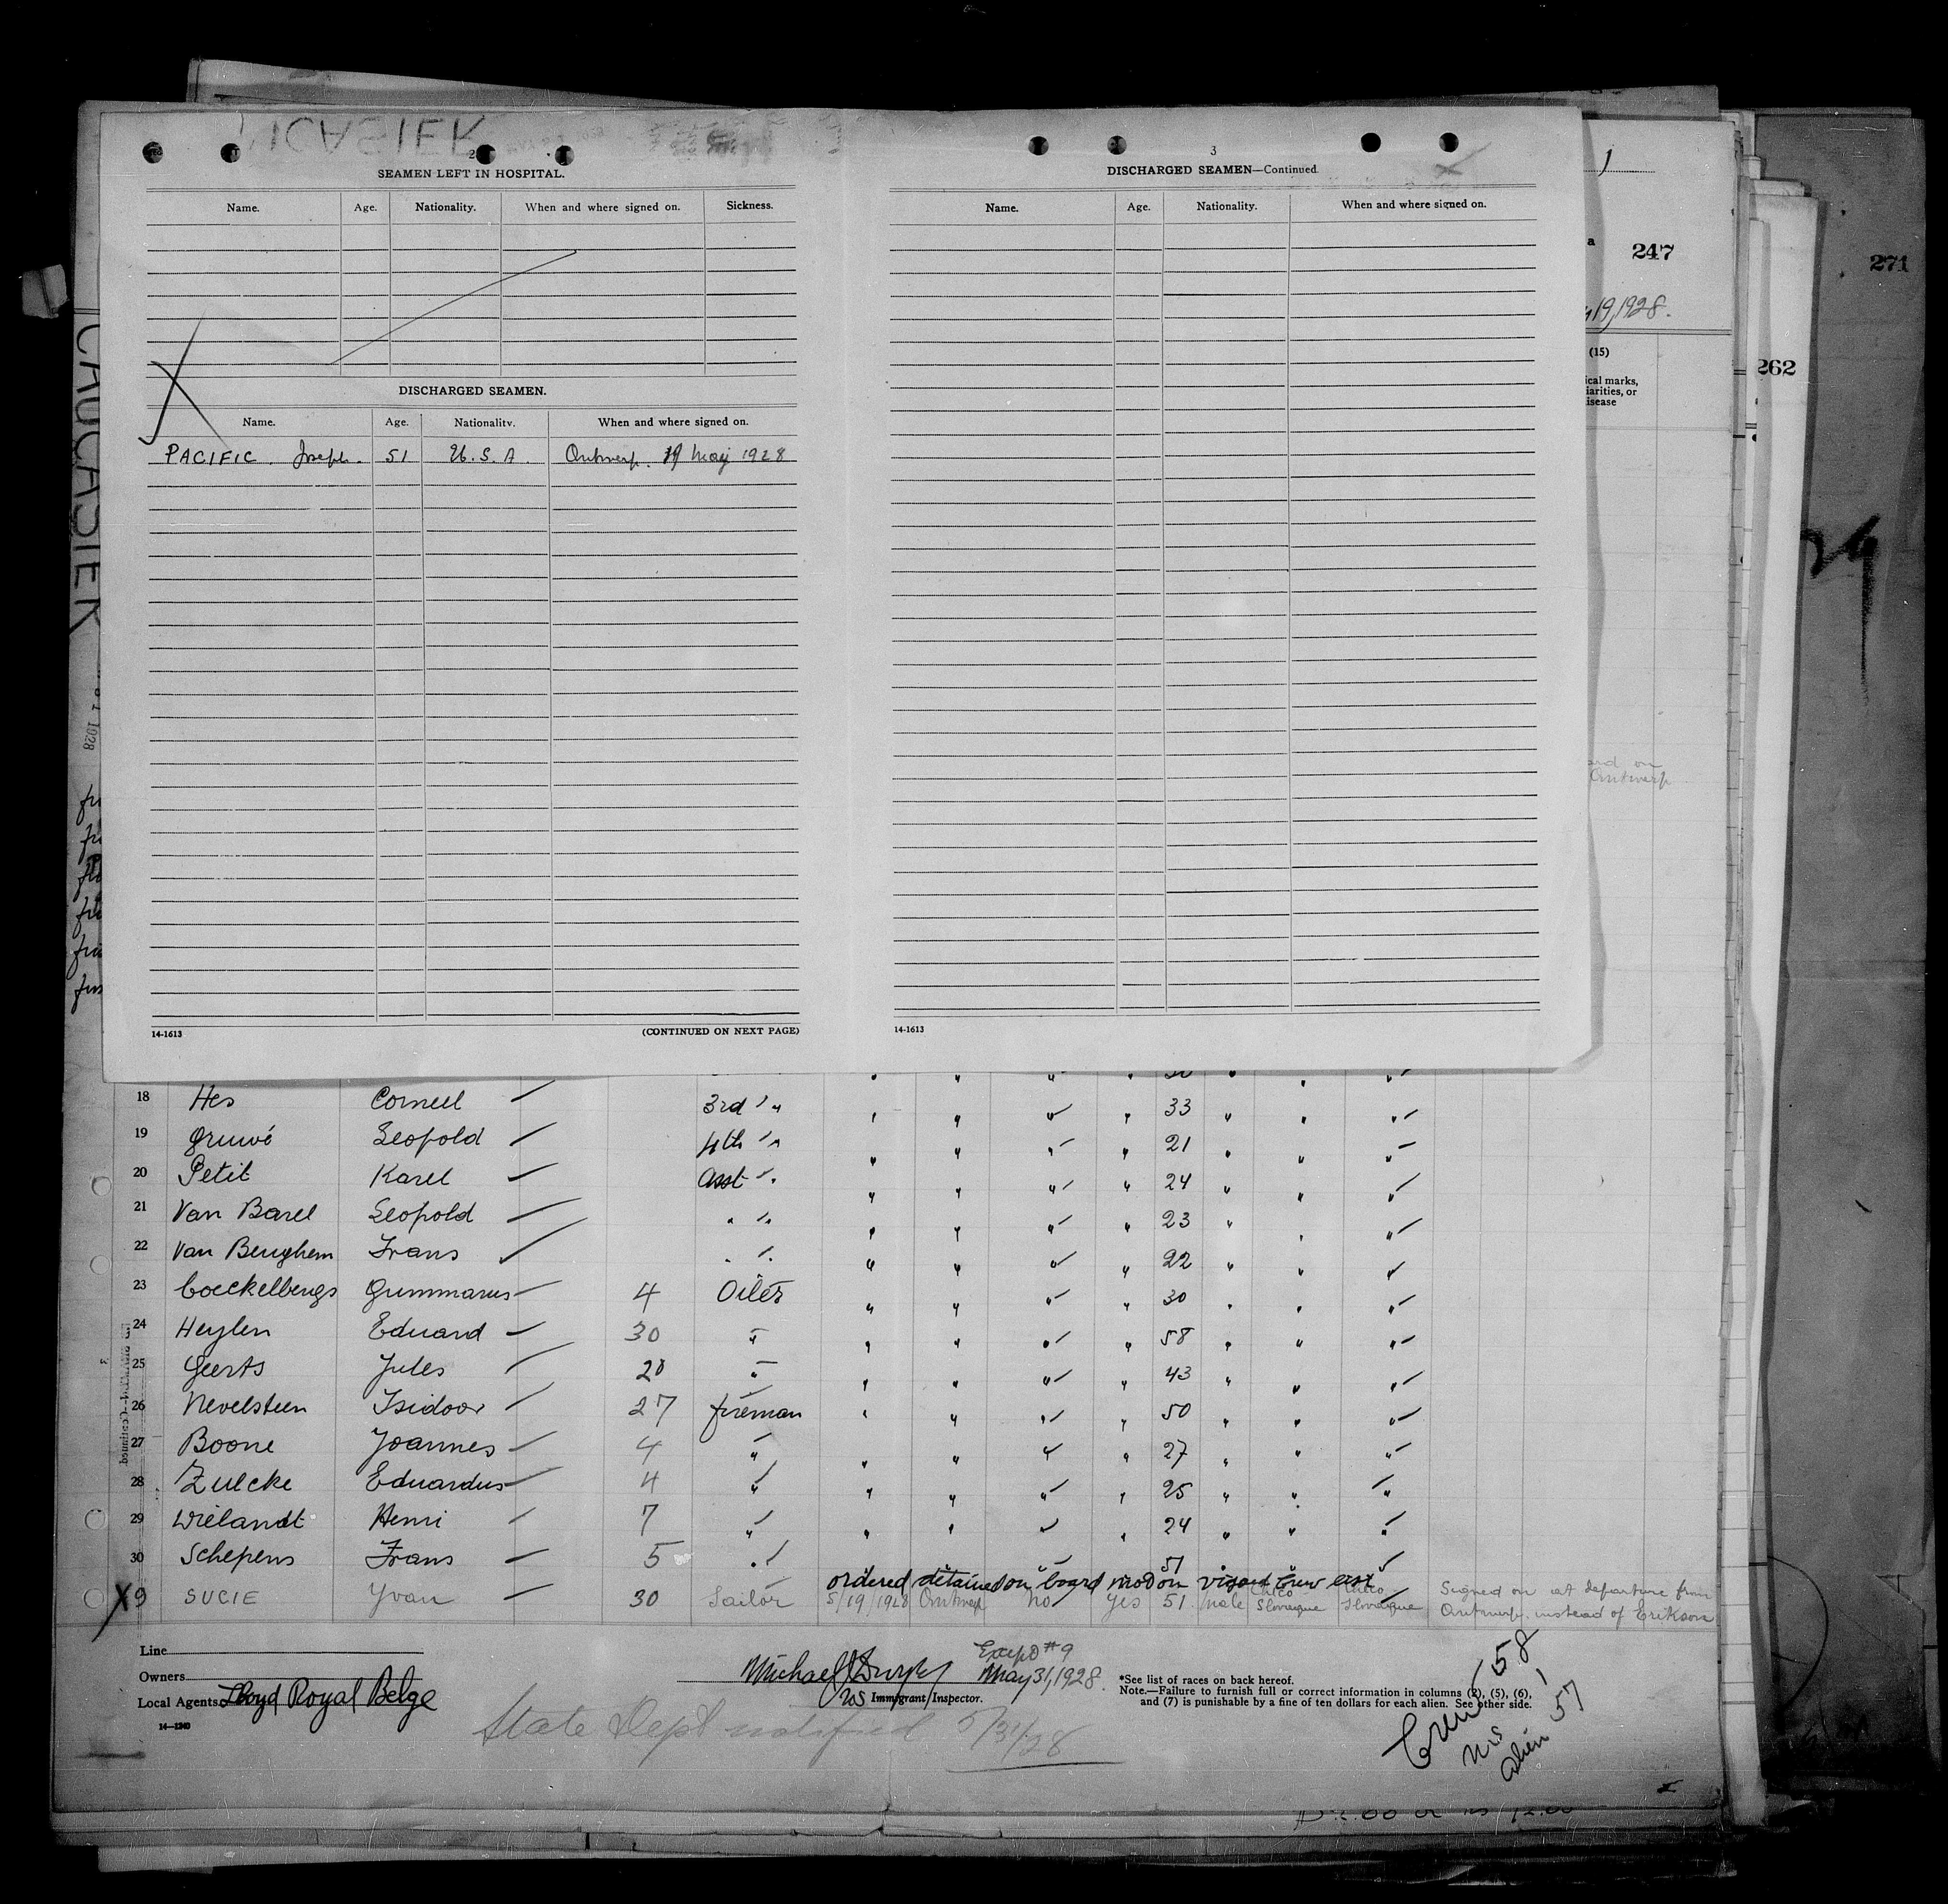 2
SEAMEN LEFT IN HOSPITAL.
Name. Age. Nationality. When and where signed on. Sickness.
DISCHARGED SEAMEN.
Name. Age. Nationality. When and where signed on.
PACIFIC. Joseph. 51 U.S.A. Antwerp. 19 May 1928
14-1613 (CONTINUED ON NEXT PAGE)
3
DISCHARGED SEAMEN—Continued
Name. Age. Nationality. When and where signed on.
14-1613
CAUCASIER
247
271
262
19, 1928.
(15)
ical marks,
iarities, or
isease
Antwerp
18 Hes Corneel 3rd " 33
19 Gruwé Leopold 4th " 21
20 Petit Karel Asst " 24
21 Van Barel Leopold " " 23
22 Van Benghem Frans " " 22
23 Coeckelbergs Gummarus 4 Oiler 30
24 Heylen Eduard 30 " 58
25 Geerts Jules 20 " 43
26 Nevelsteen Isidoor 27 fireman 50
27 Boone Joannes 4 " 27
28 Zulcke Eduardus 4 " 25
29 Wielandt Henri 7 " 24
30 Schepens Frans 5 " 51
ordered detained on board no
X9 SUCIE Yvan 30 Sailor 5/19/1928 Antwerp no yes 51 male Slovaque Slovaque Signed on at departure from
Antwerp. instead of Erikson
Line
Owners
Local Agents Lloyd Royal Belge
14—1240
Except #9
Michael May 31, 1928.
US Immigrant Inspector.
*See list of races on back hereof.
Note.—Failure to furnish full or correct information in columns (2), (5), (6),
and (7) is punishable by a fine of ten dollars for each alien. See other side.
State Dept notified 5/31/28
Crew 58
US 1
Alien 57